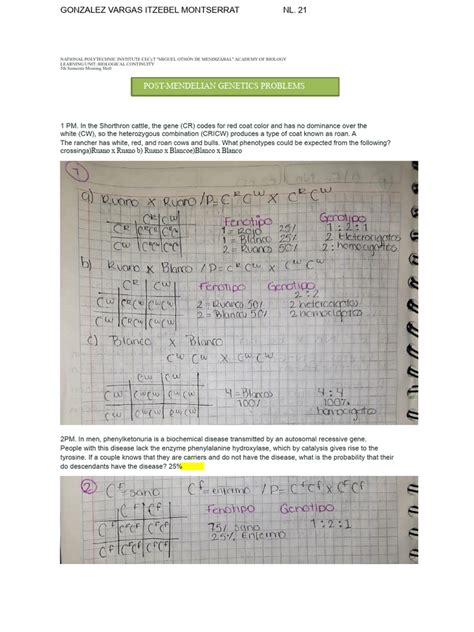 GONZALEZ VARGAS ITZEBEL MONTSERRAT NL. 21
NATIONAL POLYTECHNIC INSTITUTE CECyT "MIGUEL OTHÓN DE MENDIZABAL" ACADEMY OF BIOLOGY
LEARNING UNIT: BIOLOGICAL CONTINUITY
5th Semester Morning Shift
POST-MENDELIAN GENETICS PROBLEMS
1 PM. In the Shorthron cattle, the gene (CR) codes for red coat color and has no dominance over the
white (CW), so the heterozygous combination (CRICW) produces a type of coat known as roan. A
The rancher has white, red, and roan cows and bulls. What phenotypes could be expected from the following?
crossinga)Ruano x Ruano b) Ruano x Blancoe)Blanco x Blanco
1
a) Ruano x Ruano /P= C^R C^W x C^R C^W
C^R C^W
C^R C^RC^R C^RC^W
C^W C^RC^W C^WC^W
Fenotipo Genotipo
1 = Rojo 25% 1 : 2 : 1
1 = Blanco 25% 2 Heterocigotos
2 = Ruano 50% 2 : homocigotes
b) Ruano x Blanco /P= C^R C^W x C^W C^W
C^R C^W
Fenotipo Genotipo
2 : 2
2 = Ruano 50% 2 heterocigotos
2 = Blanco 50% 2 homocigotos
c) Blanco x Blanco
C^W C^W x C^W C^W
C^W C^W
C^W C^WC^W C^WC^W
C^W C^WC^W C^WC^W
4 = Blanco 4 : 4
100% 100%
homocigoto
2PM. In men, phenylketonuria is a biochemical disease transmitted by an autosomal recessive gene.
People with this disease lack the enzyme phenylalanine hydroxylase, which by catalysis gives rise to the
tyrosine. If a couple knows that they are carriers and do not have the disease, what is the probability that their
do descendants have the disease? 25%
2 C^F = sano C^f = enfermo / P= C^FC^f x C^FC^f
Fenotipo Genotipo
75% sano 1 : 2 : 1
25% Enfermo